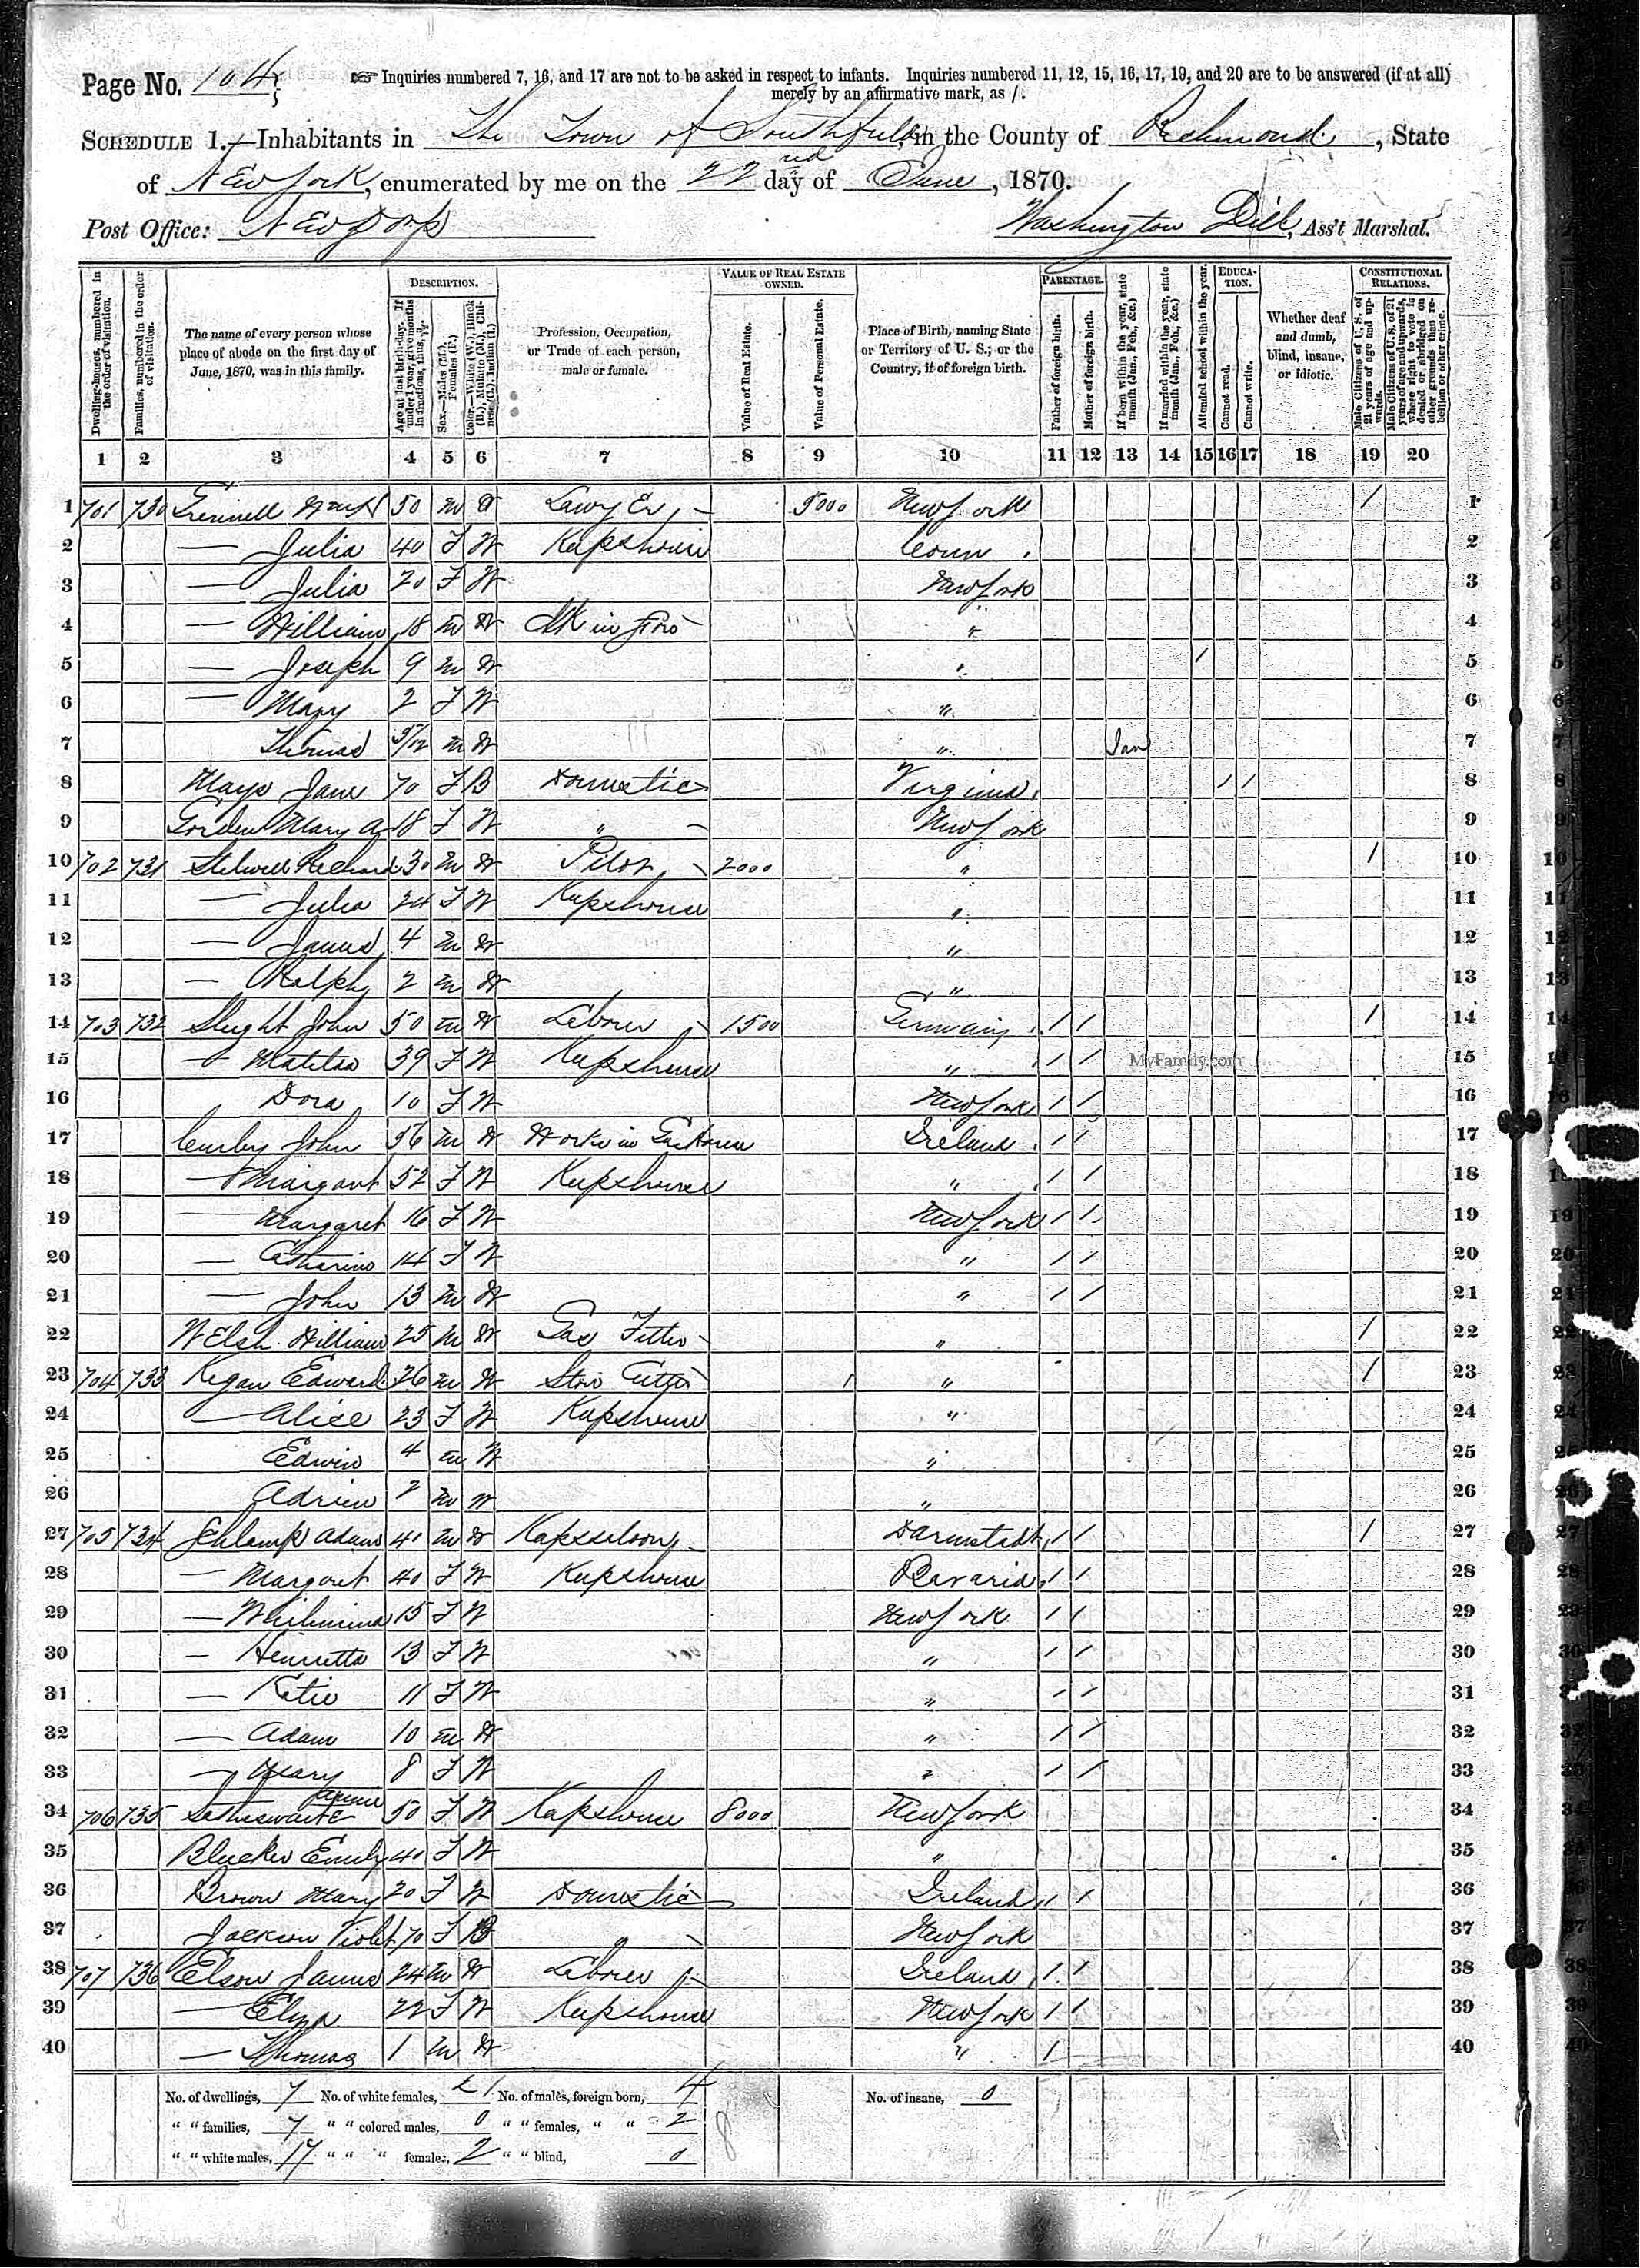 Page No. 104
Inquiries numbered 7, 16, and 17 are not to be asked in respect to infants. Inquiries numbered 11, 12, 15, 16, 17, 19, and 20 are to be answered (if at all)
merely by an affirmative mark, as /.
SCHEDULE 1.—Inhabitants in The Town of Southfield, in the County of Richmond, State
of New York, enumerated by me on the 22nd day of June, 1870.
Post Office: New Dorp Washington Dill, Ass't Marshal.
DESCRIPTION. VALUE OF REAL ESTATE OWNED. PARENTAGE. EDUCATION. CONSTITUTIONAL RELATIONS.
Dwelling-houses, numbered in the order of visitation.
Families, numbered in the order of visitation.
The name of every person whose place of abode on the first day of June, 1870, was in this family.
Age at last birth-day. If under 1 year, give months in fractions, thus, 3/12.
Sex.—Males (M.), Females (F.)
Color.—White (W.), Black (B.), Mulatto (M.), Chinese (C.), Indian (I.)
Profession, Occupation, or Trade of each person, male or female.
Value of Real Estate.
Value of Personal Estate.
Place of Birth, naming State or Territory of U. S.; or the Country, if of foreign birth.
Father of foreign birth.
Mother of foreign birth.
If born within the year, state month (Jan., Feb., &c.)
If married within the year, state month (Jan., Feb., &c.)
Attended school within the year.
Cannot read.
Cannot write.
Whether deaf and dumb, blind, insane, or idiotic.
Male Citizens of U. S. of 21 years of age and upwards.
Male Citizens of U. S. of 21 years of age and upwards, where right to vote is denied or abridged on other grounds than rebellion or other crime.
1 2 3 4 5 6 7 8 9 10 11 12 13 14 15 16 17 18 19 20
1 701 730 50 M W Lawyer 5000 New York / 1
2 — Julia 40 F W Keepshouse Conn. 2
3 — Julia 20 F W New York 3
4 — William 18 M W Clk in " 4
5 — Joseph 9 M W " / 5
6 — Mary 2 F W " 6
7 Thomas 5/12 M W " Jan 7
8 Mays Jane 70 F B Domestic Virginia / / 8
9 Gorden Mary A 18 F W " New York 9
10 702 731 Stilwell Richard 30 M W Pilot 2000 " / 10
11 — Julia 24 F W Keepshouse " 11
12 — James 4 M W " 12
13 — Ralph 2 M W " 13
14 703 732 Slught John 50 M W Laborer 1500 Germany / / / 14
15 — Matilda 39 F W Keepshouse " / / 15
MyFamily.com
16 Dora 10 F W New York / / 16
17 Curley John 56 M W Works in Ireland / / 17
18 — Margaret 52 F W Keepshouse " / / 18
19 — Margaret 16 F W New York / / 19
20 — Catharine 14 F W " / / 20
21 — John 13 M W " / / 21
22 Welsh William 25 M W Gas Fitter " / 22
23 704 733 Kegan Edward 26 M W Cutter " / 23
24 — Alice 23 F W Keepshouse " 24
25 Edwin 4 M W " 25
26 Adrien 2 M W " 26
27 705 734 Schlamp Adam 40 M W Keepssaloon Darmstadt / / / 27
28 — Margaret 40 F W Keepshouse Bavaria / / 28
29 — Wilhimina 15 F W New York / / 29
30 — Henrietta 13 F W " / / 30
31 — Katie 11 F W " / / 31
32 — Adam 10 M W " / / 32
33 — Mary 8 F W " / / 33
34 706 735 50 F W Keepshouse 8000 New York 34
35 Bleeker Emily 40 F W " 35
36 Brown Mary 20 F W Domestic Ireland / / 36
37 Jackson Violet 70 F B " New York 37
38 707 736 Elson James 24 M W Laborer Ireland / / 38
39 — Eliza 22 F W Keepshouse New York / / 39
40 — Thomas 1 M W " / 40
No. of dwellings, 7 No. of white females, 21 No. of males, foreign born, 4 No. of insane, 0
" " families, 7 " " colored males, 0 " " females, " " 2
" " white males, 17 " " " females, 2 " " blind, 0